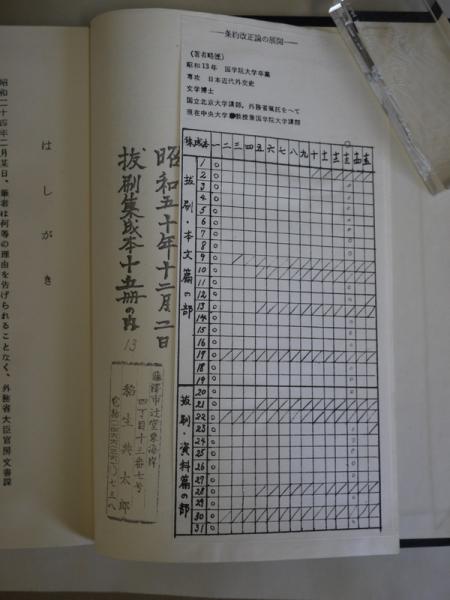 ―条約改正論の展開―
(著者略歴)
昭和13年　国学院大学卒業
専攻　日本近代外交史
文学博士
国立北京大学講師，外務省嘱託をへて
現在中央大学●教授兼国学院大学講師
集成本 一 二 三 四 五 六 七 八 九 十 十一 十二 十三 十四 十五
抜刷・本文篇の部
1
2
3
4
5
6
7
8
9
10
11
12
13
14
15
16
17
18
19
抜刷・資料篇の部
20
21
22
23
24
25
26
27
28
29
30
31
昭和五十年十二月二日
抜刷集成本十五冊の内 13
藤澤市辻堂東海岸
四丁目十三番七号
稲生典太郎
はしがき
昭和二十四年二月某日、筆者は何等の理由を告げられることなく、外務省大臣官房文書課